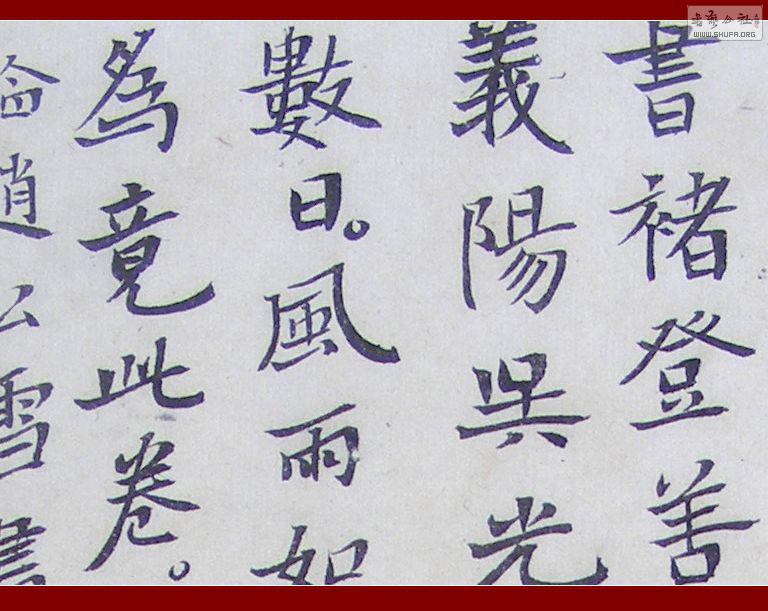 書褚登善
義陽吳光
數日。風雨如
為竟此卷。
侖趙公雪書
書法公社
WWW.SHUFA.ORG